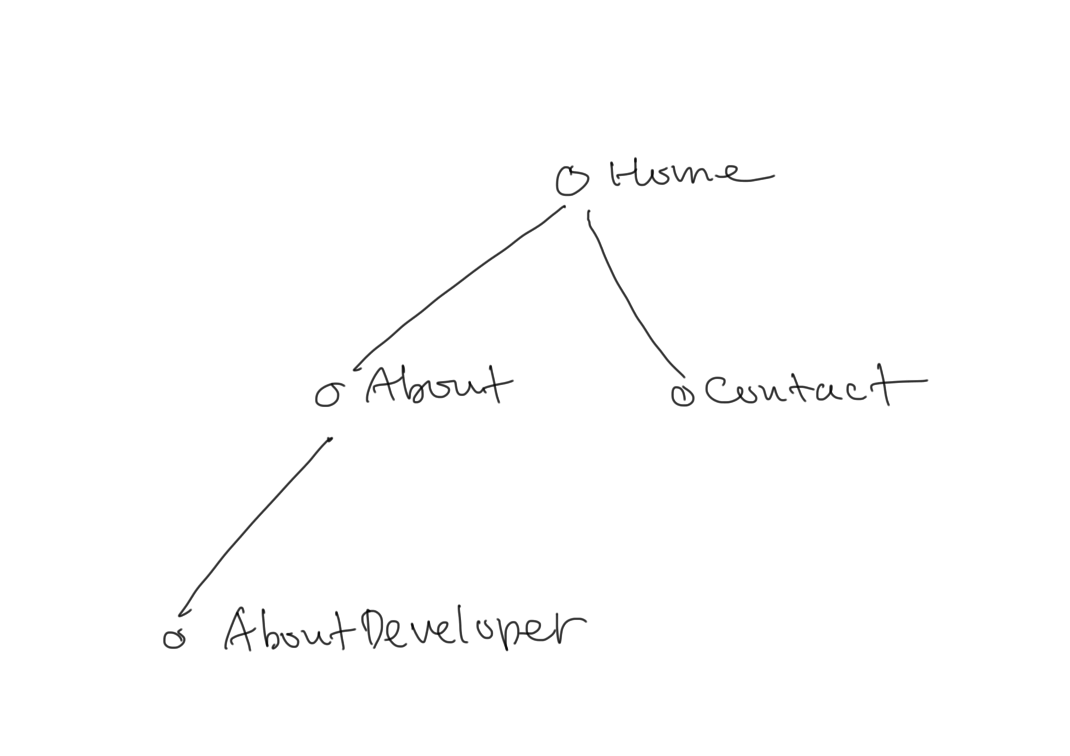 Home
About
Contact
AboutDeveloper